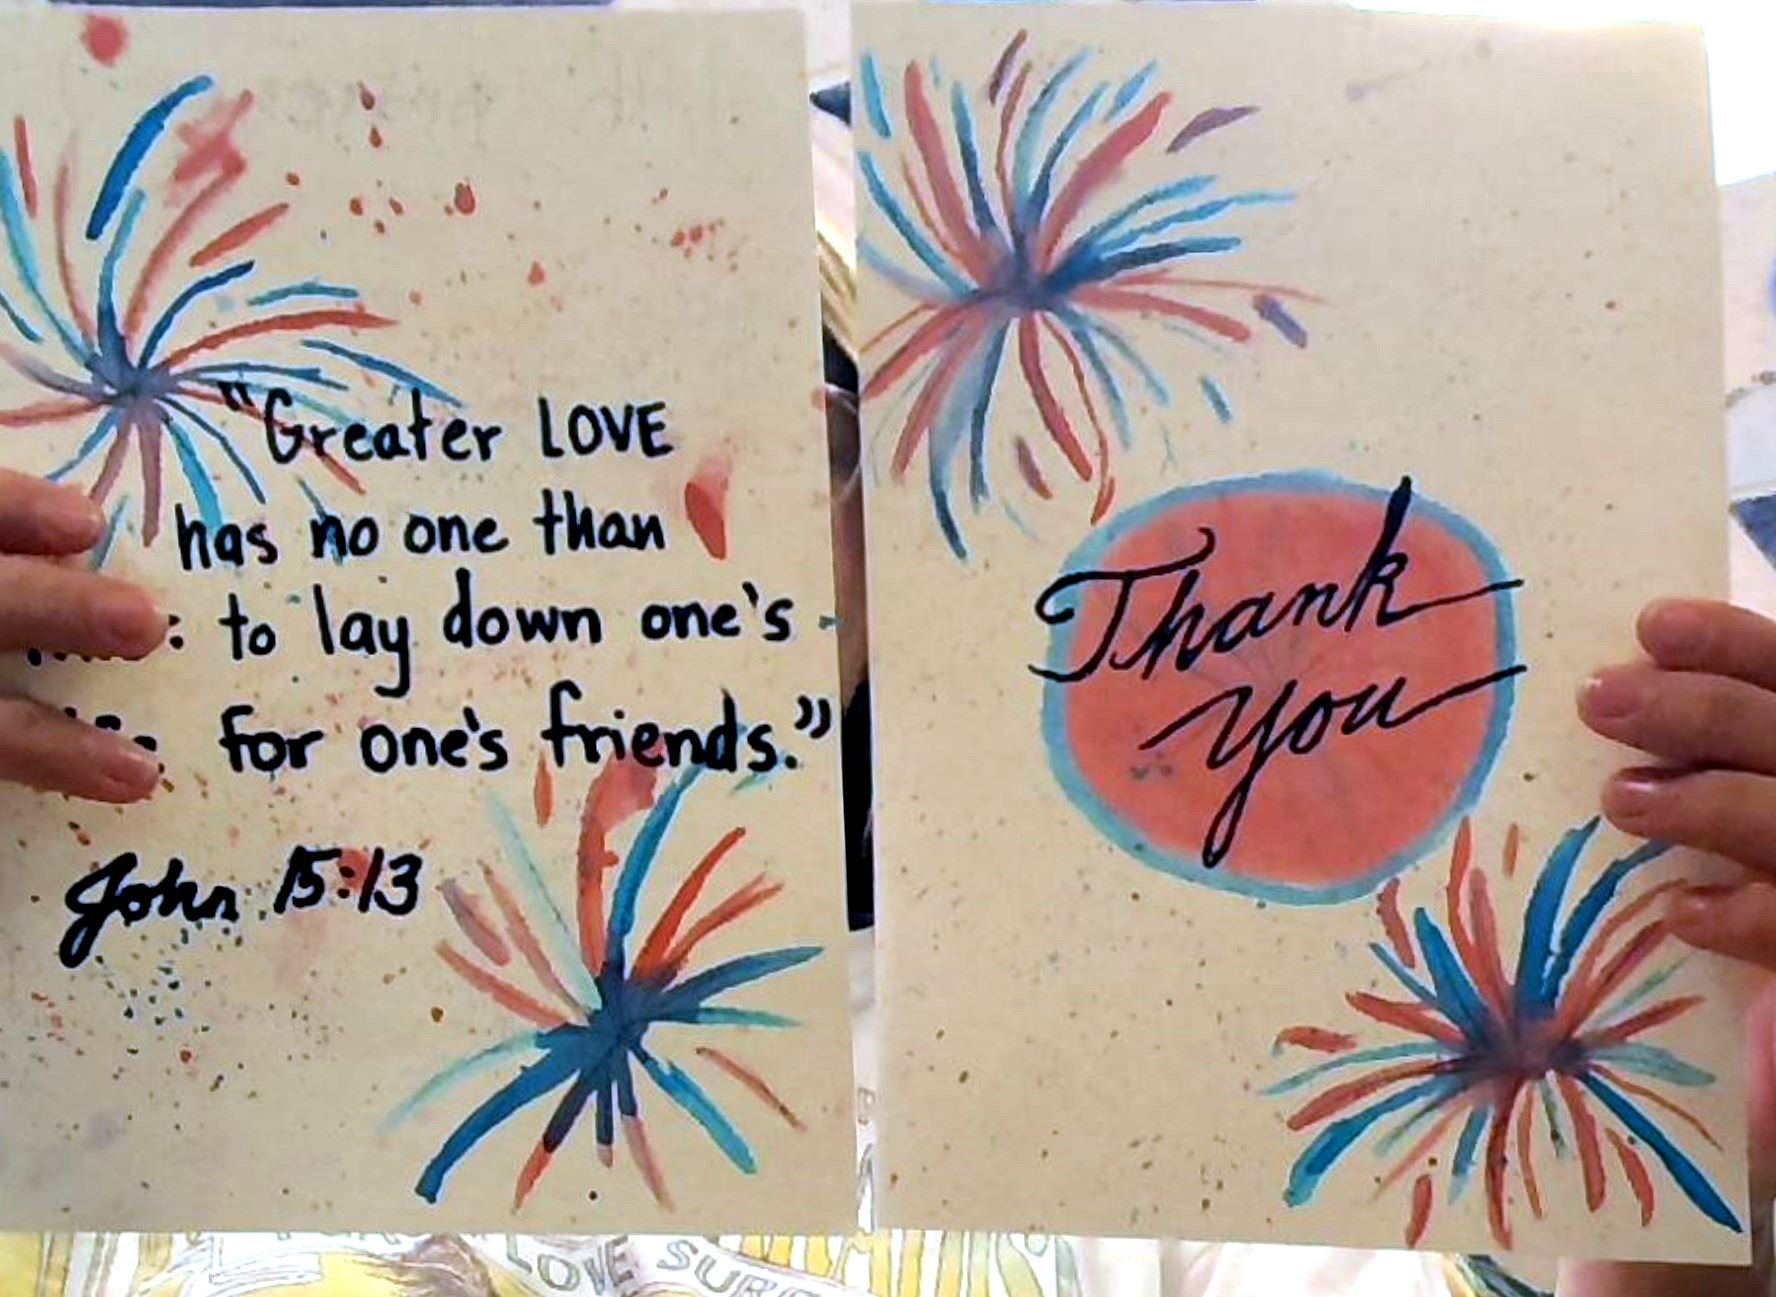 "Greater LOVE
has no one than
: to lay down one's
for one's friends."
John 15:13
Thank
you
LOVE